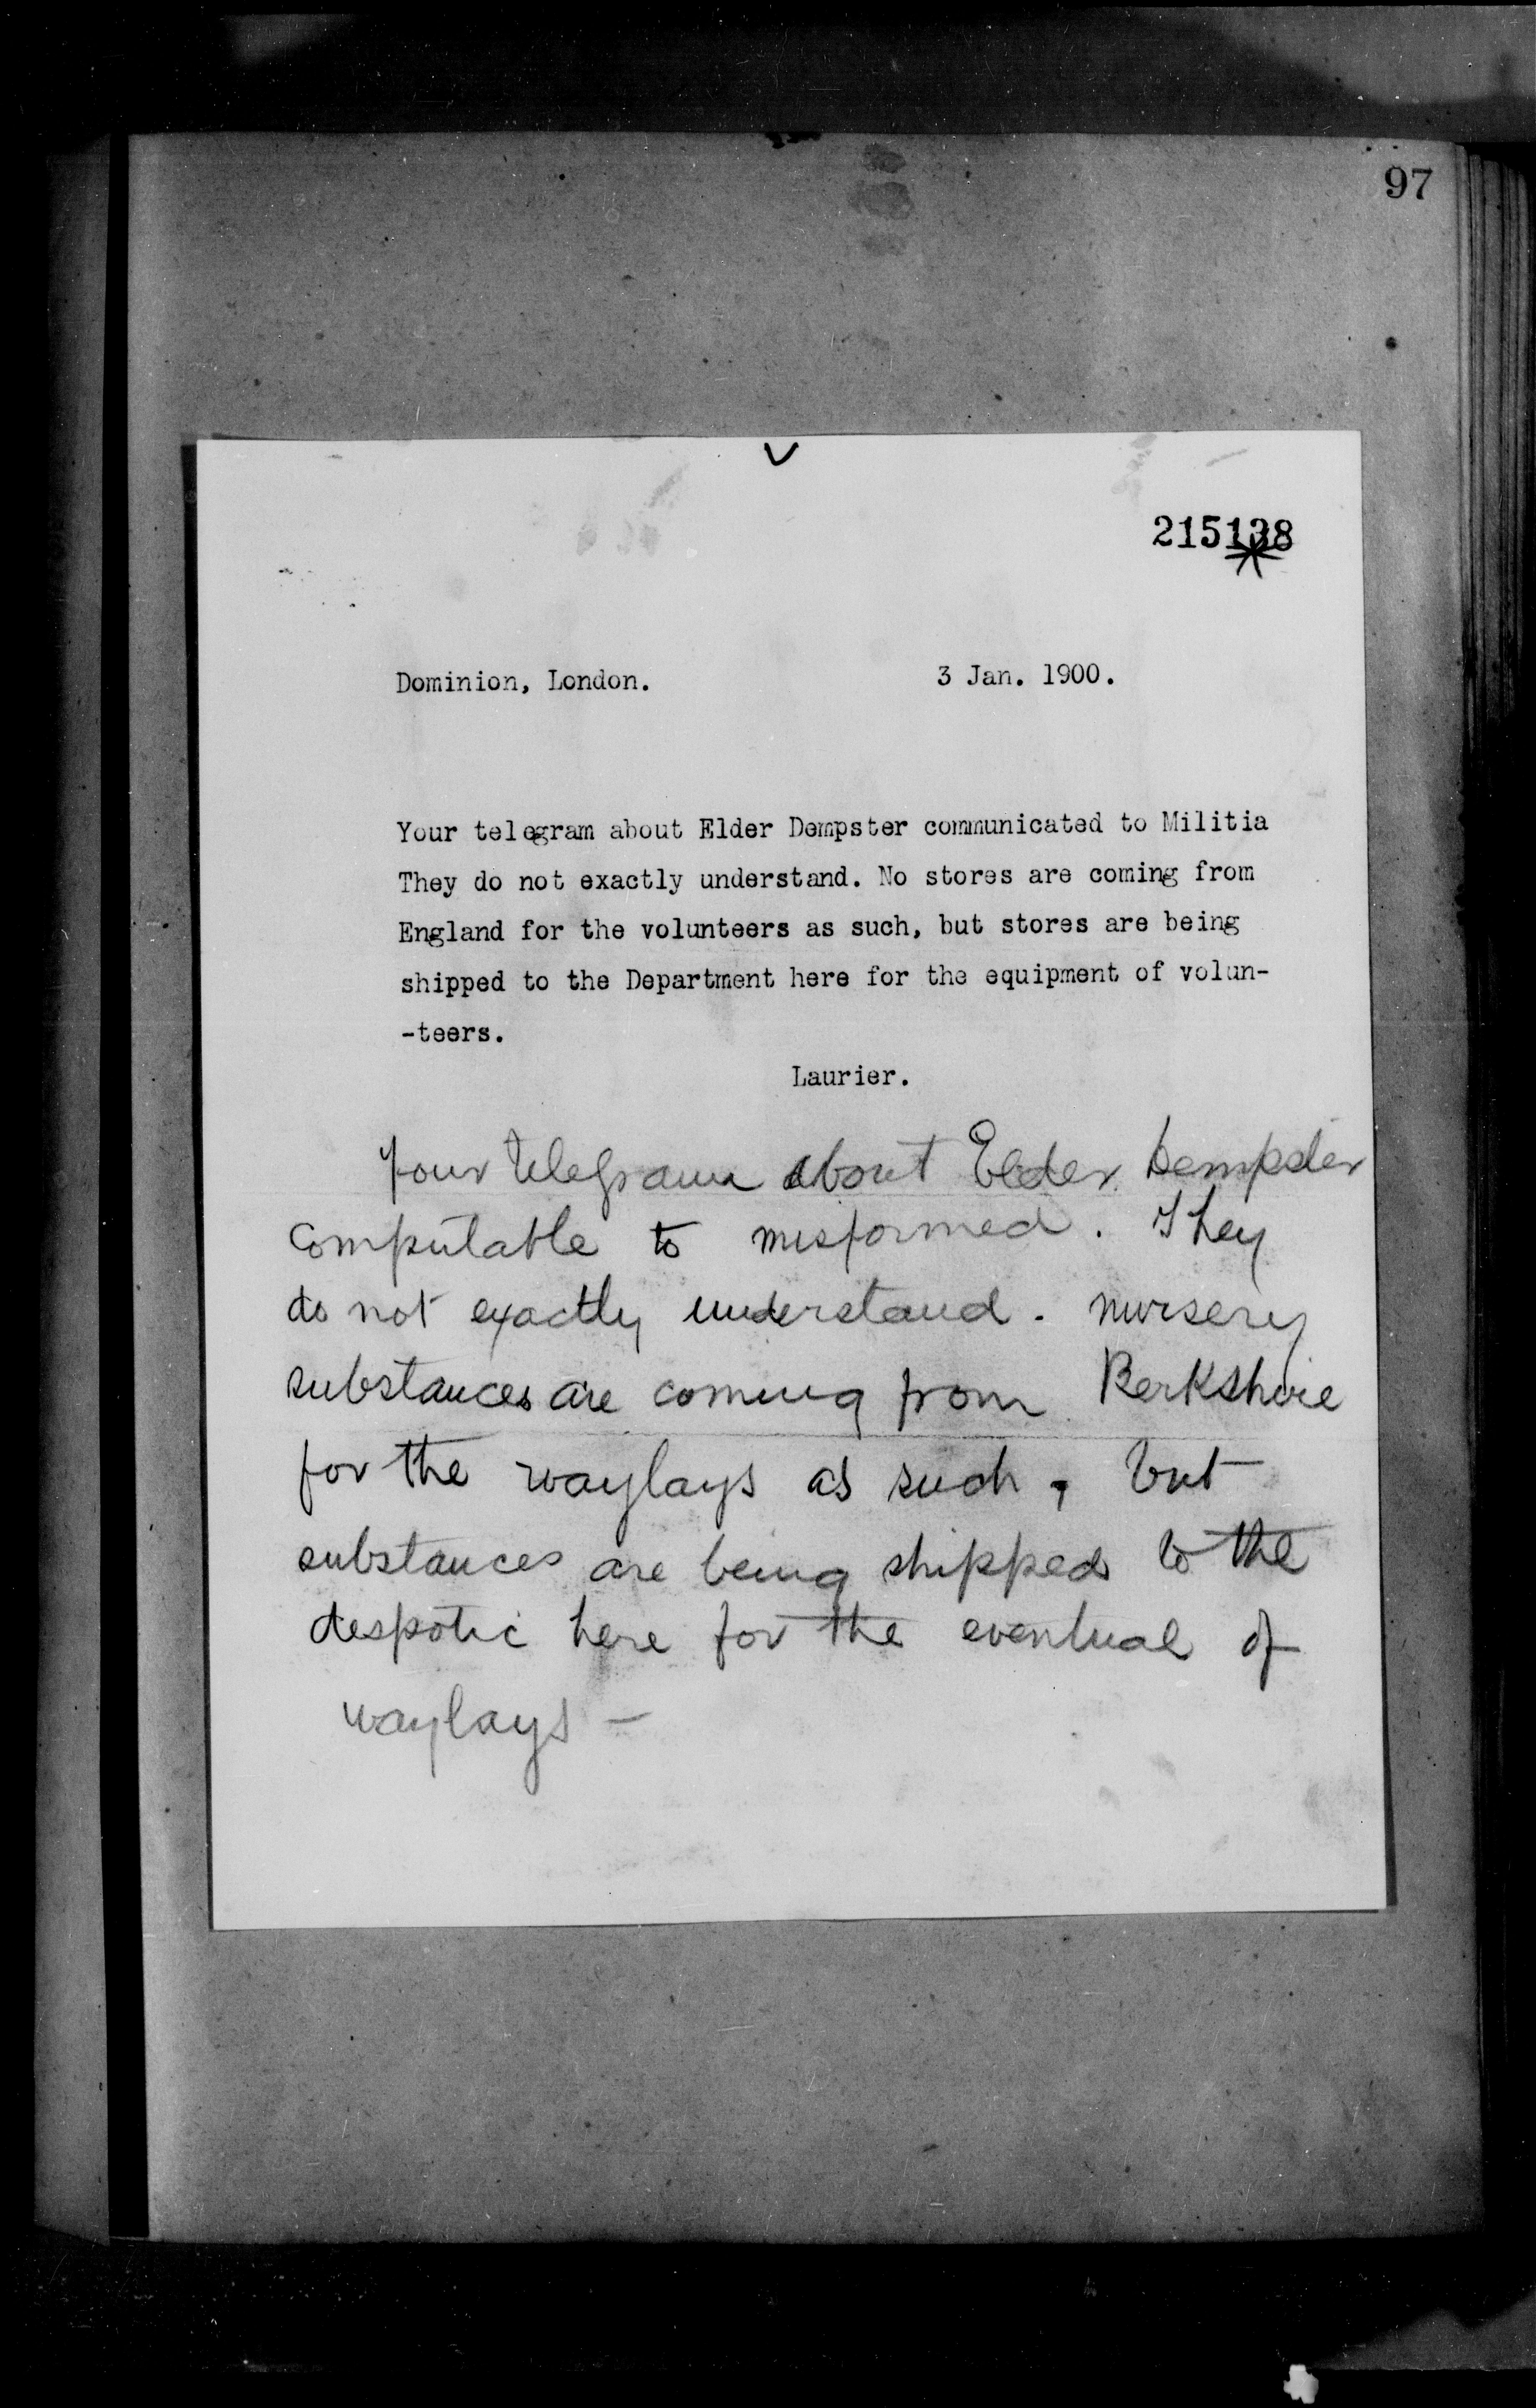 97
215138
Dominion, London. 3 Jan. 1900.
Your telegram about Elder Dempster communicated to Militia
They do not exactly understand. No stores are coming from
England for the volunteers as such, but stores are being
shipped to the Department here for the equipment of volun-
-teers.
Laurier.
Your telegram about Elder Dempster
computable to misformed. They
do not exactly understand. nursery
substances are coming from Berkshire
for the waylays as such, but
substances are being shipped to the
despotic here for the eventual of
waylays -